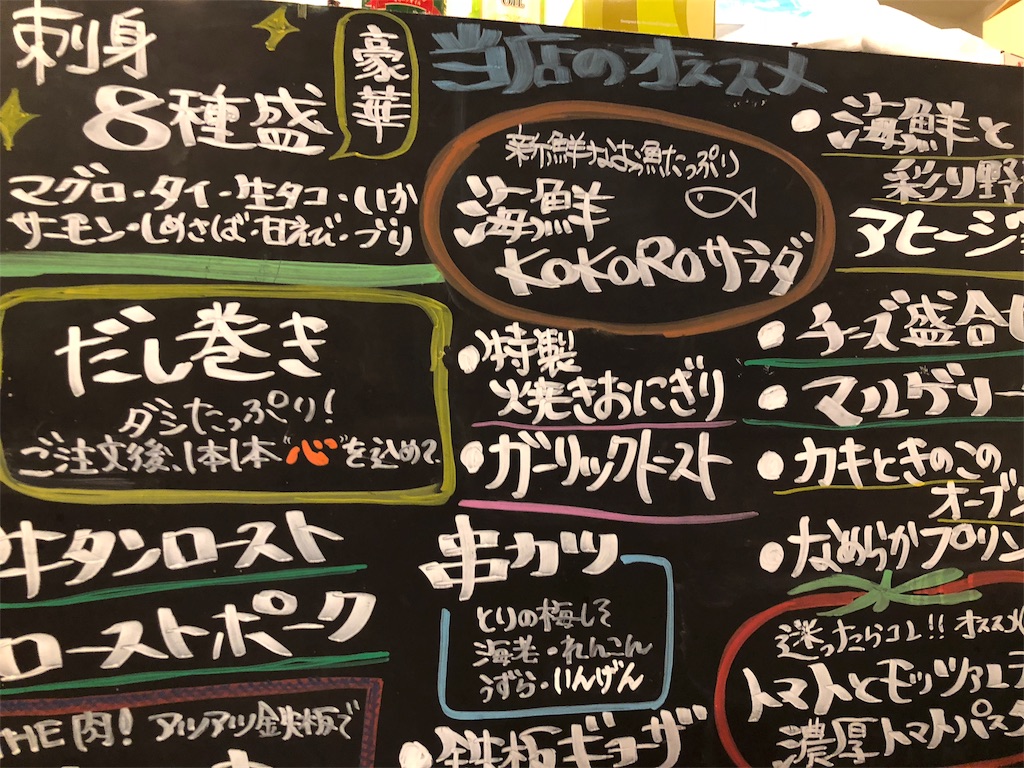 刺身
豪華
8種盛
マグロ・タイ・生タコ・いか
サーモン・しめさば・甘えび・ブリ
だし巻き
ダシたっぷり!
ご注文後、1本1本"心"を込めて、
牛タンロースト
ローストポーク
THE 肉! アツアツ鉄板で
当店のオススメ
新鮮なお魚たっぷり
海鮮
KOKOROサラダ
・特製
焼きおにぎり
・ガーリックトースト
串カツ
とりの梅しそ
海老・れんこん
うずら・いんげん
・鉄板ギョーザ
・海鮮と
彩り野
アヒージョ
・チーズ盛合せ
・マルゲリー
・カキときのこの
オーブン
・なめらかプリン
迷ったらコレ!! オススメ
トマトとモッツァレラ
濃厚トマトパスタ